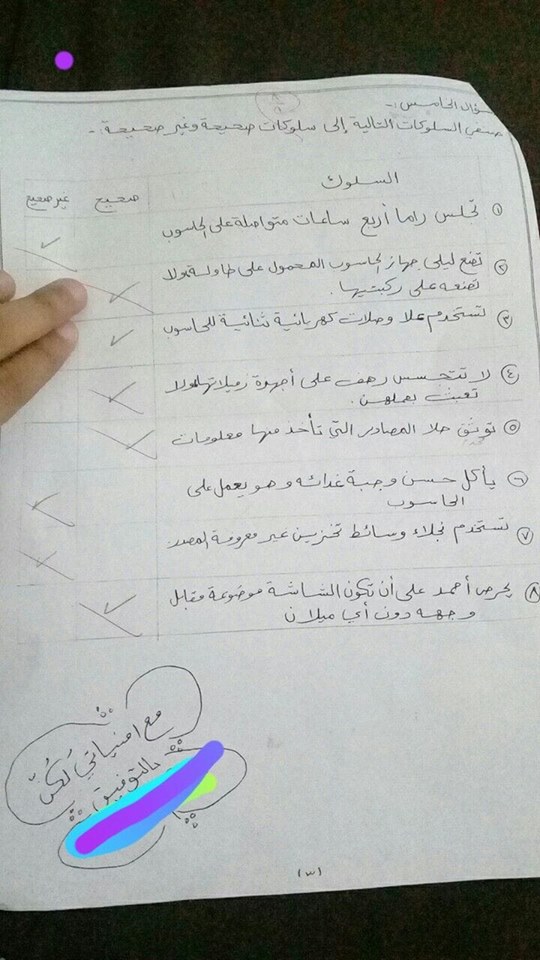 ٨
سؤال الخامس :-
صنفي السلوكات التالية إلى سلوكات صحيحة وغير صحيحة .-
السلوك
صحيح
غير صحيح
١ تجلس راما أربع ساعات متواصلة على الحاسوب
٢ تضع ليلى جهاز الحاسوب المحمول على طاولة ولا
تضعه على ركبتيها.
٣ تستخدم علا وصلات كهربائية ثنائية للحاسوب
٤ لا تتجسس رهف على أجهزة زميلاتها ولا
تعبث بعملهن.
٥ توثق حلا المصادر التي تأخذ منها معلومات
٦ يأكل حسن وجبة غدائه وهو يعمل على
الحاسوب
٧ تستخدم نجلاء وسائط تخزين غير معروفة المصدر
٨ يحرص أحمد على أن تكون الشاشة موضوعة مقابل
وجهه دون أي ميلان
مع امنياتي لكنّ
بالتوفيق
(٣)